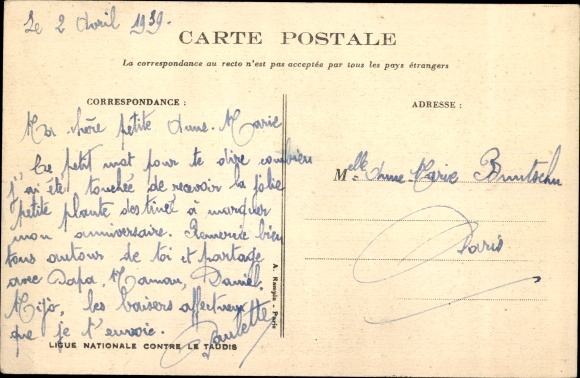 Le 2 Avril 1939.
CARTE POSTALE
La correspondance au recto n'est pas acceptée par tous les pays étrangers
CORRESPONDANCE :
Ma chère petite Anne-Marie
Ce petit mot pour te dire combien
j'ai été touchée de recevoir la jolie
petite plante destinée à marquer
mon anniversaire. Remercie bien
tous autour de toi et partage
avec Papa, Maman, Daniel,
Mijo, les baisers affectueux
que je t'envoie.
Paulette
LIGUE NATIONALE CONTRE LE TAUDIS
A. Rampin - Paris
ADRESSE :
Melle Anne-Marie
Paris